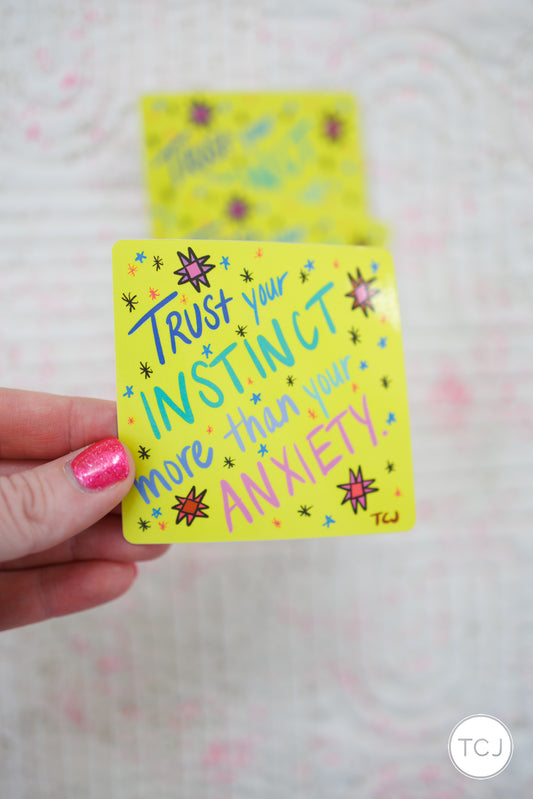 Trust your
INSTINCT
more than your
ANXIETY.
TCJ
TCJ